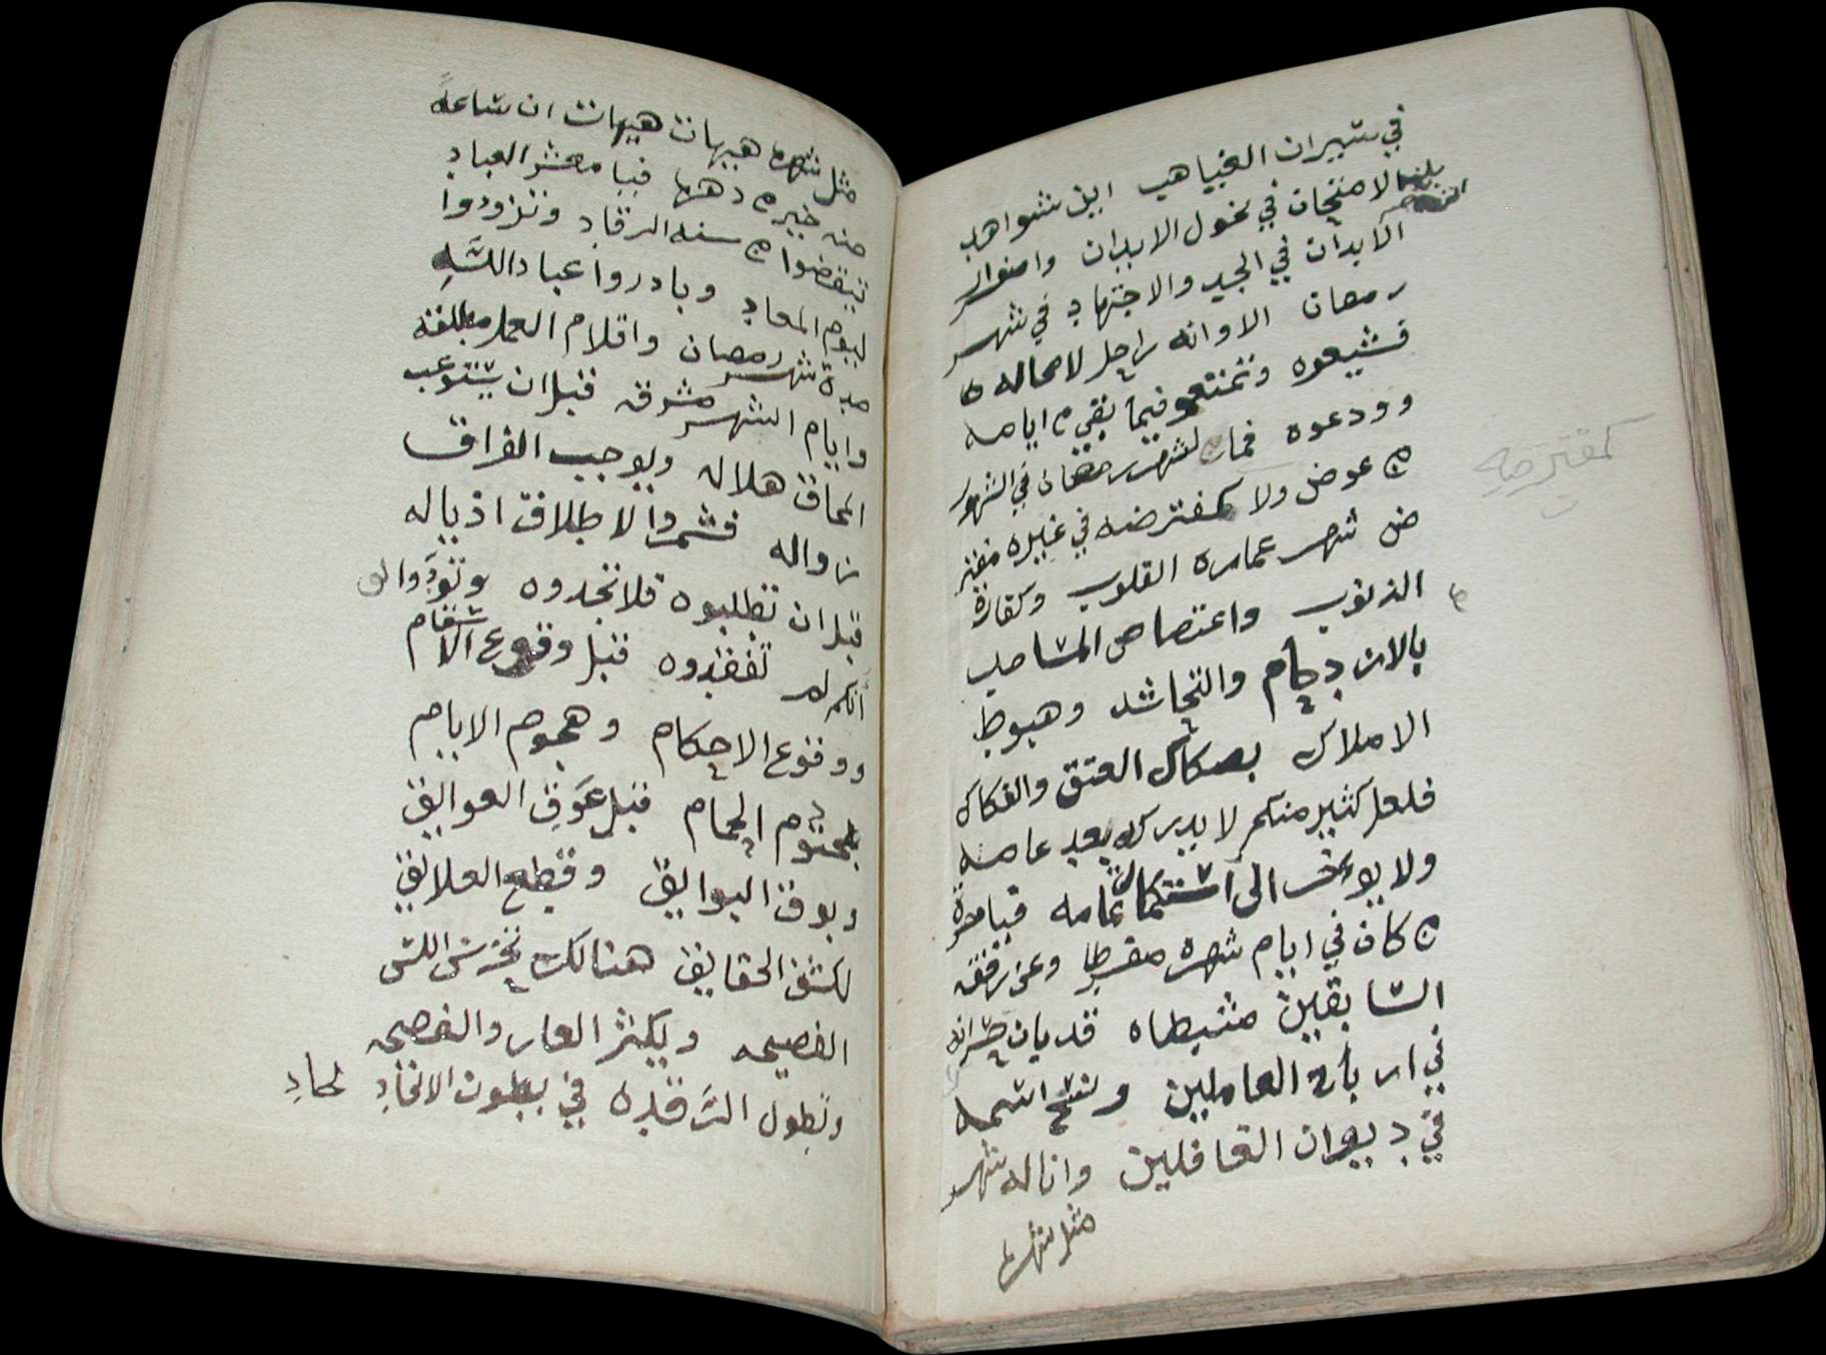 في ستيران الغياهب اين شواهد
بلغها الامتحان في نحول الابدان واصفرار
الابدان في الجد والاجتهاد في شهر
رمضان الا وانه راحل لا محاله
فشيعوه وتمتعو فيما بقي من ايامه
وودعوه فما لشهر رمضان في الشهور
من عوض ولا كمفترضه في غيره مفتر
ض شهر عمارة القلوب وكفارة
الذنوب واختصاص المساجد
بالازدحام والتحاشد وهبوط
الاملاك بصكاك العتق والفكاك
فلعل كثير منكم لا يدركه بعد عامه
ولا يوخر الى استكمال عامه فيا حسرة
من كان في ايام شهره مفرطا وعن رفقه
السابقين مثبطا قد بان خسرانه
في ارباح العاملين ونسخ اسمه
في ديوان الغافلين وانا له شهر
مثل شهرها
كمفترضه
مثل شهرها هيهات هيهات ان ساعة
منه خير من دهرها فيا معشر العباد
تيقضوا من سنة الرقاد وتزودوا
ليوم المعاد وبادروا عباد الله
مدة شهر رمضان واقلام العمل مطلقه
وايام الشهر مشرقه قبل ان يستوعب
المحاق هلاله ويوجب الفراق
زواله فشمروا لاطلاق اذياله
قبل ان تطلبوه فلا تجدوه وتودوا لو
انكم لم تفقدوه قبل وقوع الاسقام
ووقوع الاحكام وهجوم الايام
بمحتوم الحمام قبل عوق العوايق
وبوق البوايق وقطع العلايق
لكشف الحقايق هنالك تخرس اللسن
الفصيحه ويكثر العار والفضيحه
وتطول الرقده في بطون الالحاد